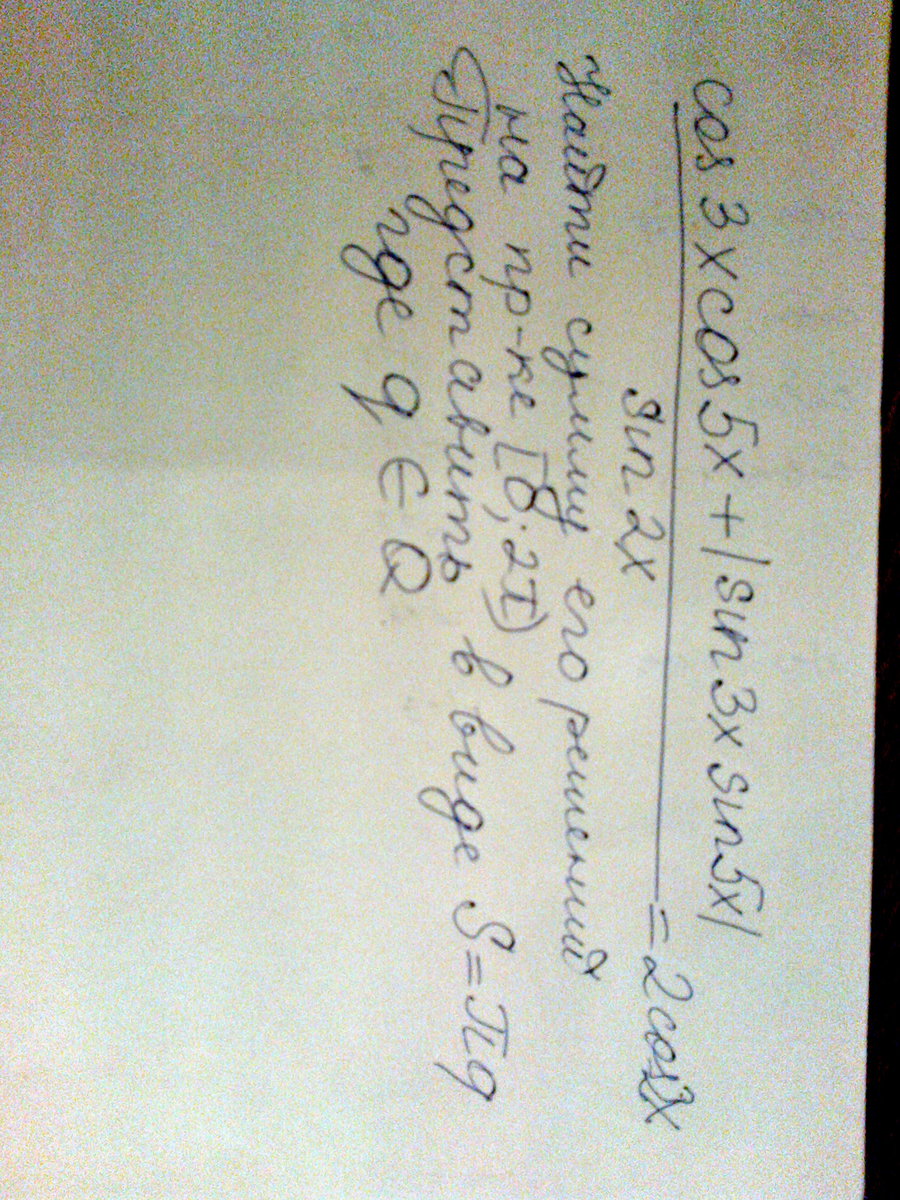 cos 3x cos 5x + |sin 3x sin 5x|
sin 2x
= 2 cos 2x
Найти сумму его решений
на пр-ке [0; 2π)
Представить в виде S = πq
где q ∈ Q